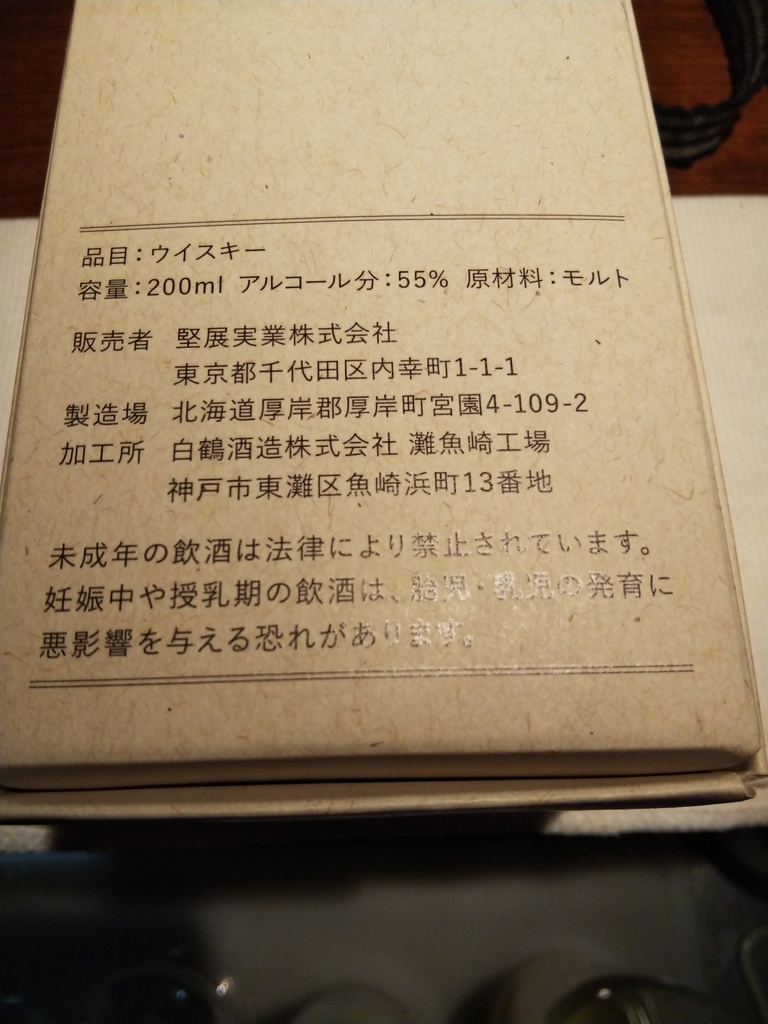 品目：ウイスキー
容量：200ml アルコール分：55% 原材料：モルト
販売者 堅展実業株式会社
東京都千代田区内幸町1-1-1
製造場 北海道厚岸郡厚岸町宮園4-109-2
加工所 白鶴酒造株式会社 灘魚崎工場
神戸市東灘区魚崎浜町13番地
未成年の飲酒は法律により禁止されています。
妊娠中や授乳期の飲酒は、胎児・乳児の発育に
悪影響を与える恐れがあります。